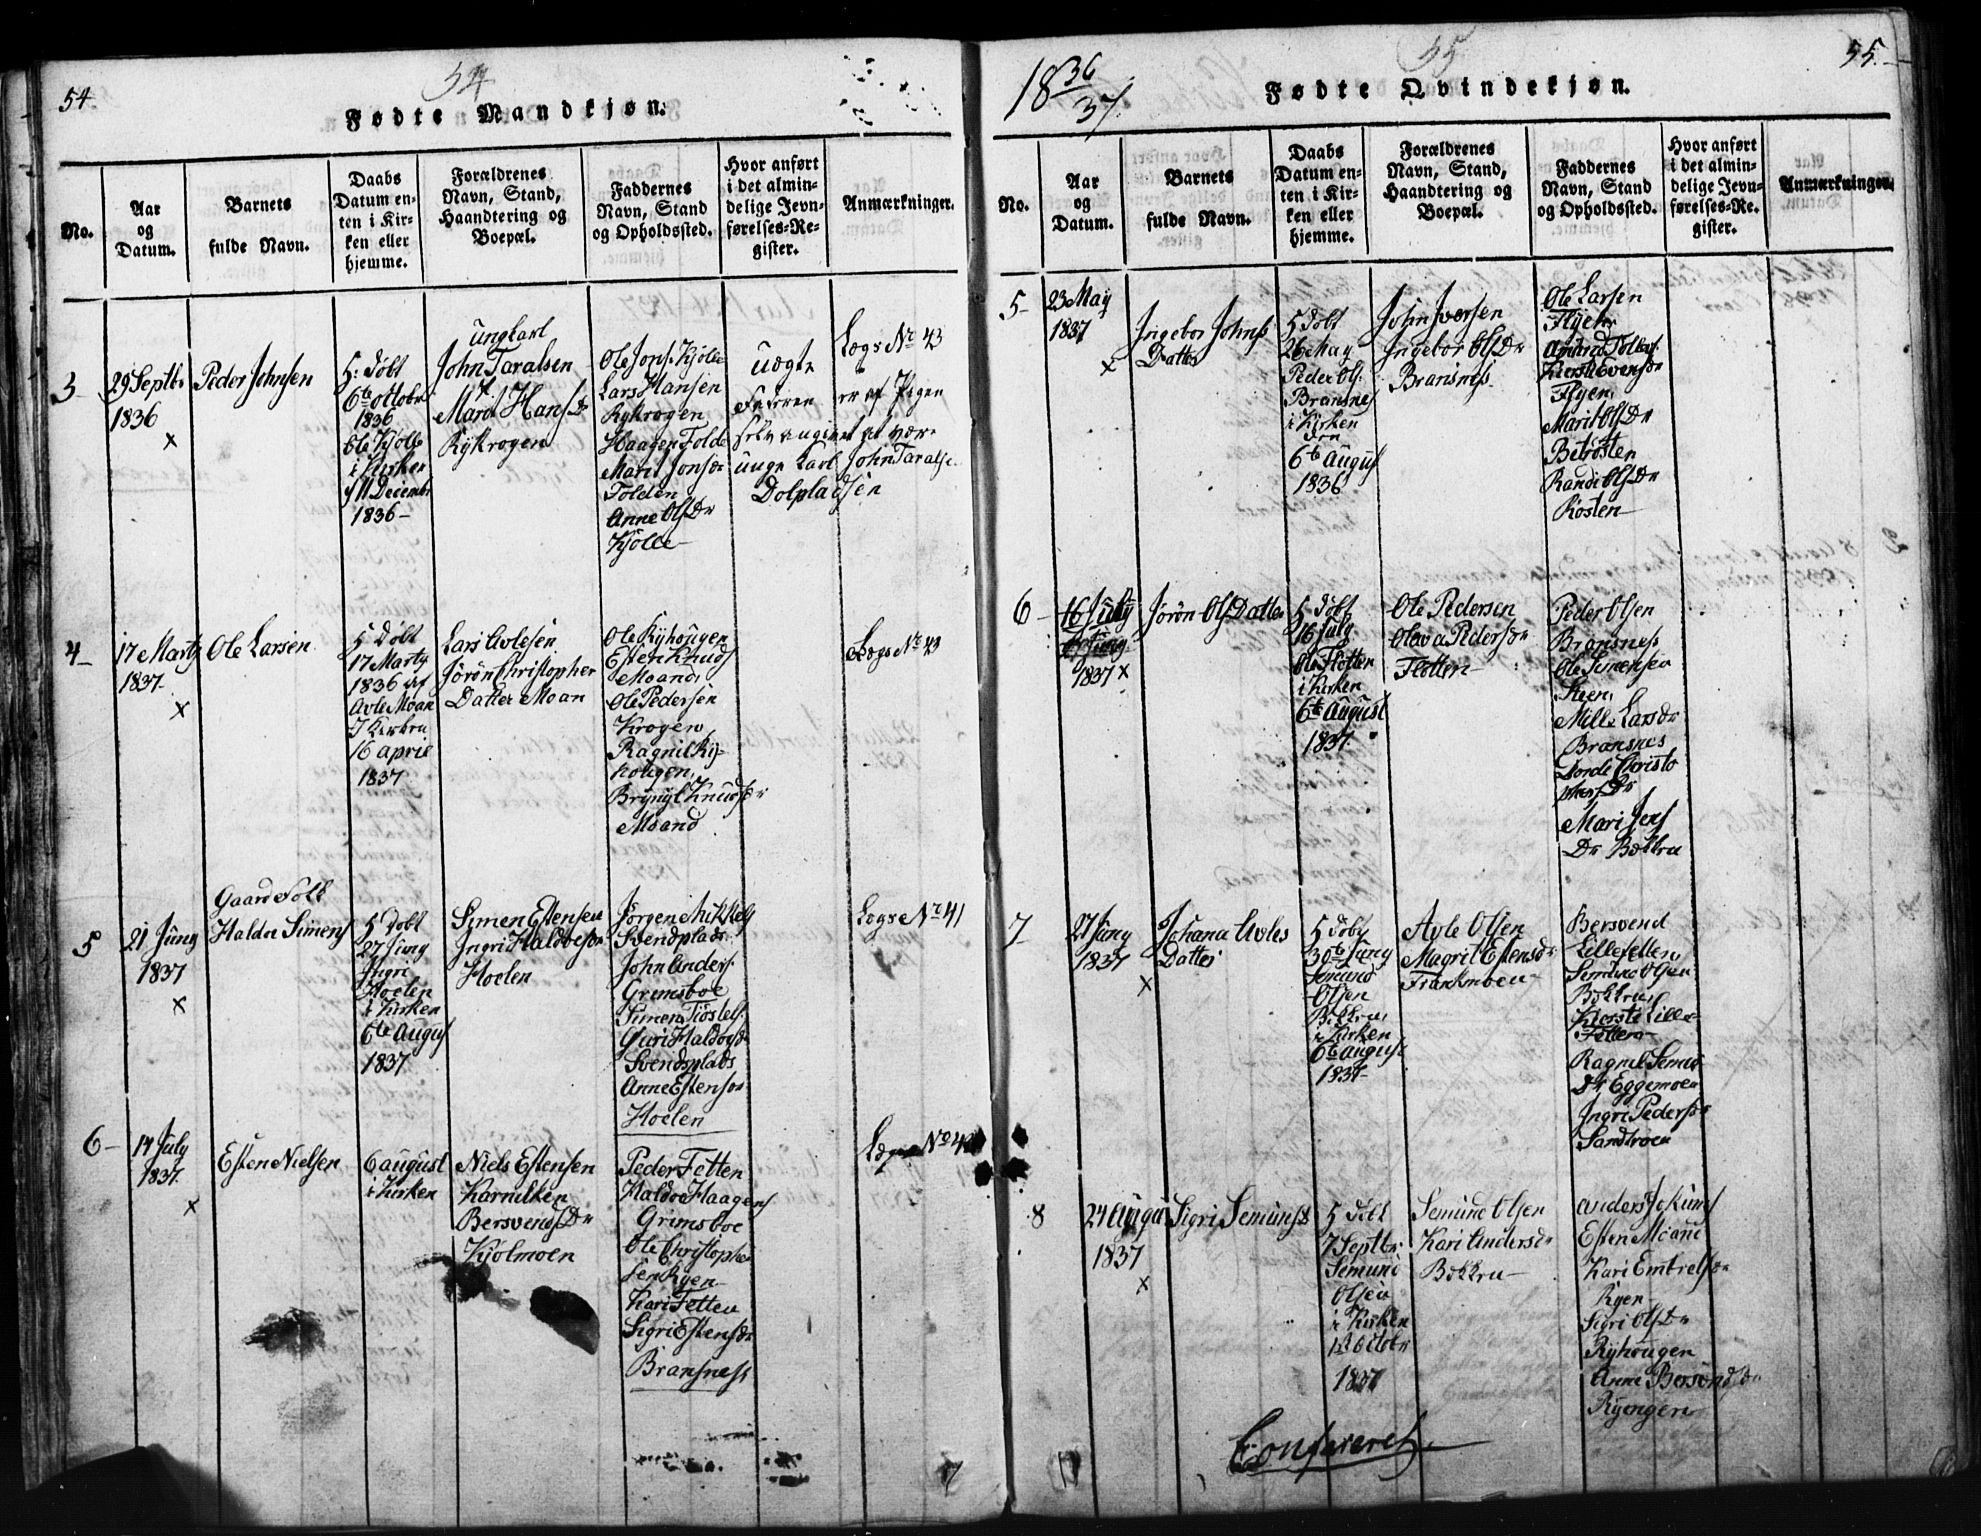 54.
54
Fødte Mandkjøn.
No.
Aar
og
Datum.
Barnets
fulde Navn.
Daabs
Datum en-
ten i Kir-
ken eller
hjemme.
Forældrenes
Navn, Stand,
Haandtering og
Boepæl.
Faddernes
Navn, Stand
og Opholdssted.
Hvor anført
i det almin-
delige Jevn-
førelses-Re-
gister.
Anmærkninger.
3
29 Septbr
1836
x
Peder Johnsen
H: døbt
6te octobr
1836
Ole Kjølle
i Kirken
11 Decembr
1836 –
ungkarl
John Taralsen
Marit Hansdr
Rykrogen
Ole Jons. Kjølle
Lars Hansen
Rykrogen
Haagen Folde
Marit Jonsdr
Folden
Anne OlsDr
Kjølle –
uægte
Faderen er af Pigen
selv angivet at være
unge Karl John Taralse
Dolpladsen
Logs No 43
4 –
17 Marty
1837.
x
Ole Larsen
H Døbt
17 Marty
1836 af
Avle Moan
I Kirken
16 april
1837
Lars Avlesen
Jörön Christopher
Datter Moan
Ole Ryhougen
Esten Knuds
Moand,
Ole Pedersen
Krogen,
Ragnil Ry-
hougen,
Brynyl Knudsdr
Moand
Logs No 43
Gaard Folk
5
21 Juny
1837
x
Haldor Simens
H Døbt
27 Juny
Ingri
Hoelen
i Kirken
6te August
1837
Simen Estensen
Ingri Haldorsdr
Hoelen
Jörgen Mikkels
Svendplads
John Anders.
Grimsboe
Simen Tiöstels.
Guri Haldorsdr
Svendsplads
Anne Estensdr
Hoelen
Logs No 41
6 –
14 July
1837.
x
Esten Nielsen
6 august
i Kirken
Niels Estensen
Karnilken
BersvendsDr
Kjølmoen
Peder Fetten
Haldor Haagens
Grimsboe
Ole Christophe
sen Ryen
Kari Fetten
Sigri Estensdr
Bransness
No 4
7
55.
55
1836/37.
Fødte Qvindekjøn.
No.
Aar
og
Datum.
Barnets
fulde Navn.
Daabs
Datum en-
ten i Kir-
ken eller
hjemme.
Forældrenes
Navn, Stand,
Haandtering og
Boepæl.
Faddernes
Navn, Stand
og Opholdssted.
Hvor anført
i det almin-
delige Jevn-
førelses-Re-
gister.
Anmærkninger.
5 –
23 May
1837
x
Ingebor Johns
Datter
H Døbt
26 May
Peder Ols.
Bransnes
i Kirken
Den
6te August
1836
John Iversen
Ingebor OlsDr
Bransness
Ole Larsen
Flyen
Amund Tollefs.
Kersti Evensdr
Flyen,
Marit OlsDr
Betrösten
Randi OlsDr
Rosten –
6 –
16 July
1837 x
Jörön OlsDatter
H Døbt
16 July
Ole Flotten
i Kirken
6te August
1837.
Ole Pedersen
Olava Pedersdr
Flotten –
Peder Olsen
Bransness
Ole Simensen
Steen,
Mille Larsdr
Bransnes
Dorde Christo
phersDr
Mari Jens
Dr Bekken
7
27 Juny
1837
x
Johana Avles
Datter
H døbt
30te Juny
Semund
Olsen
Bekken,
i Kirken
6te august
1837 –
Avle Olsen
Magrit Estensdr
Frankmoen –
Bersvend
Lillefetten
Semund Olsen
Bekken,
Kjersti Lille-
Fetten
Ragnil Semds
Dr Eggemoen
Ingri Pedersdr
Sandtröen
8
24 August
1837
x
Sigri Semunsdr
H Døbt
7 Septbr
Semund
Olsen
i Kirken
1 octobr
1837
Semund Olsen
Kari Andersdr
Bekken –
Anders Jokums
Esten Moand
Kari Embretsdr
Ryen –
Sigri OlsDr
Ryhougen
Anne Bersvendsdr
Ryengen
Confereret